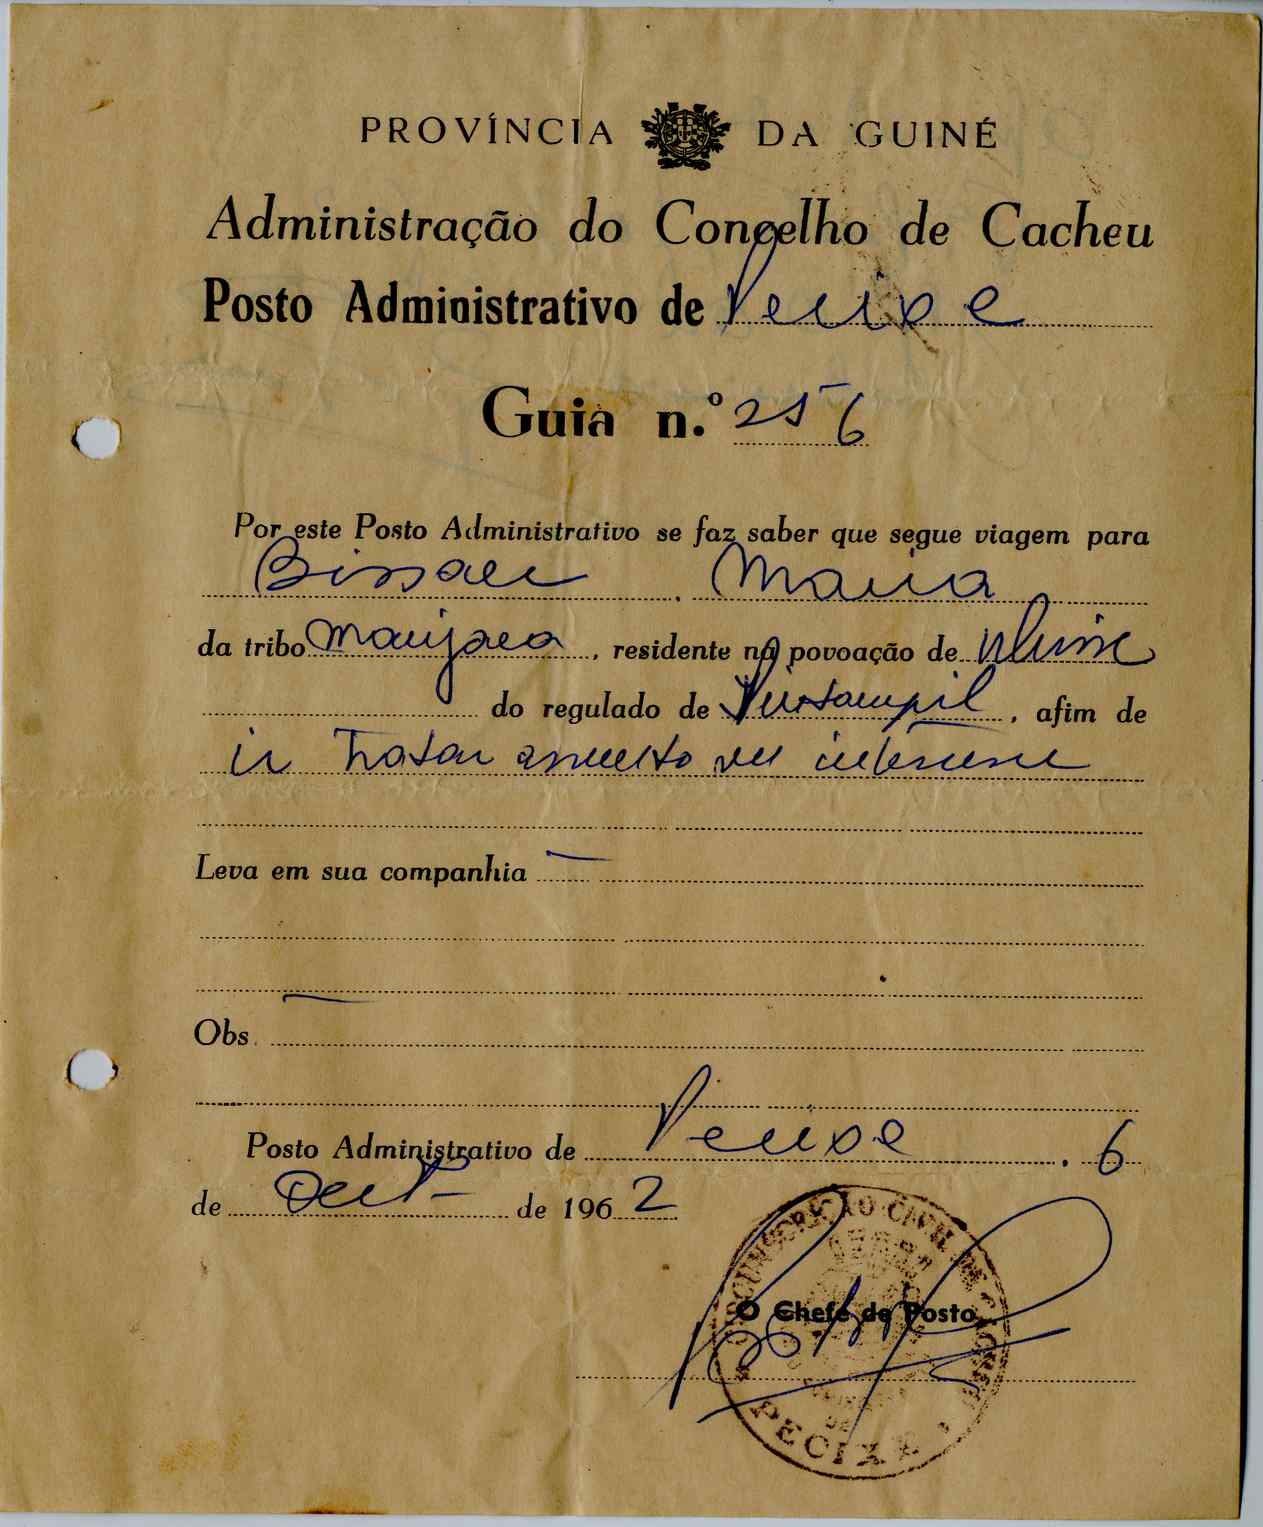 PROVÍNCIA DA GUINÉ
Administração do Concelho de Cacheu
Posto Administrativo de Pecixe
Guia n.º 256
Por este Posto Administrativo se faz saber que segue viagem para
Bissau . Maria
da tribo Manjaca , residente na povoação de
do regulado de , afim de
ir tratar assunto seu interesse
Leva em sua companhia —
Obs. —
Posto Administrativo de Pecixe , 6
de Out- de 1962
CIRCUNSCRIÇÃO CIVIL DE CACHEU
O Chefe de Posto,
PECIXE